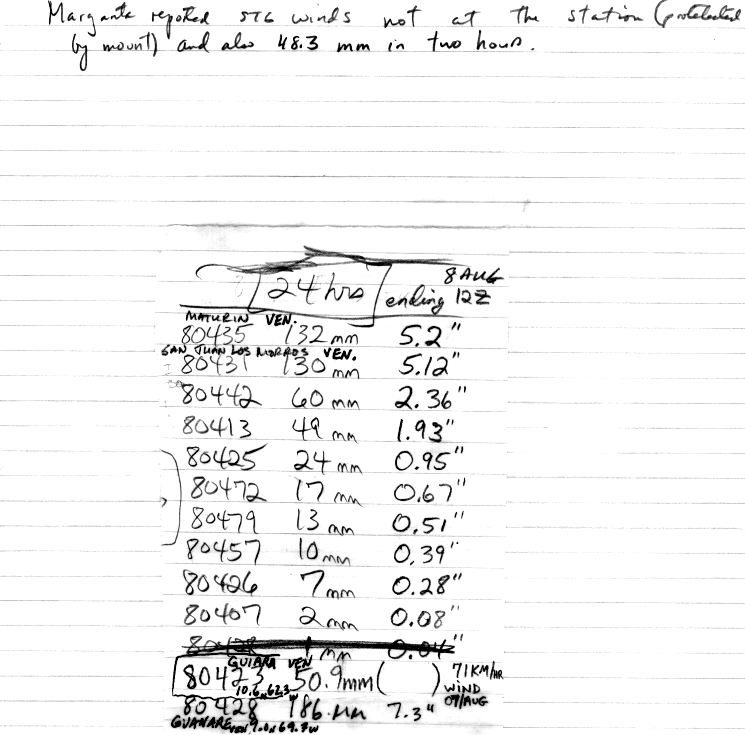 Margarita repoted STG winds not at the station (protelected
by mount) and also 48.3 mm in two hours.
24 hrs ending 8 AUG 12Z
MATURIN VEN.
80435 132 mm 5.2"
SAN JUAN LOS MORROS VEN.
80431 130 mm 5.12"
80442 60 mm 2.36"
80413 49 mm 1.93"
80425 24 mm 0.95"
80472 17 mm 0.67"
80479 13 mm 0.51"
80457 10 mm 0.39"
80426 7 mm 0.28"
80407 2 mm 0.08"
80428 1 mm 0.04"
GUIARA VEN
80423 50.9mm ( ) 71KM/HR
10.6N 62.3W WIND
07/AUG
80428 186 mm 7.3"
GUANARE VEN 9.0N 69.7W